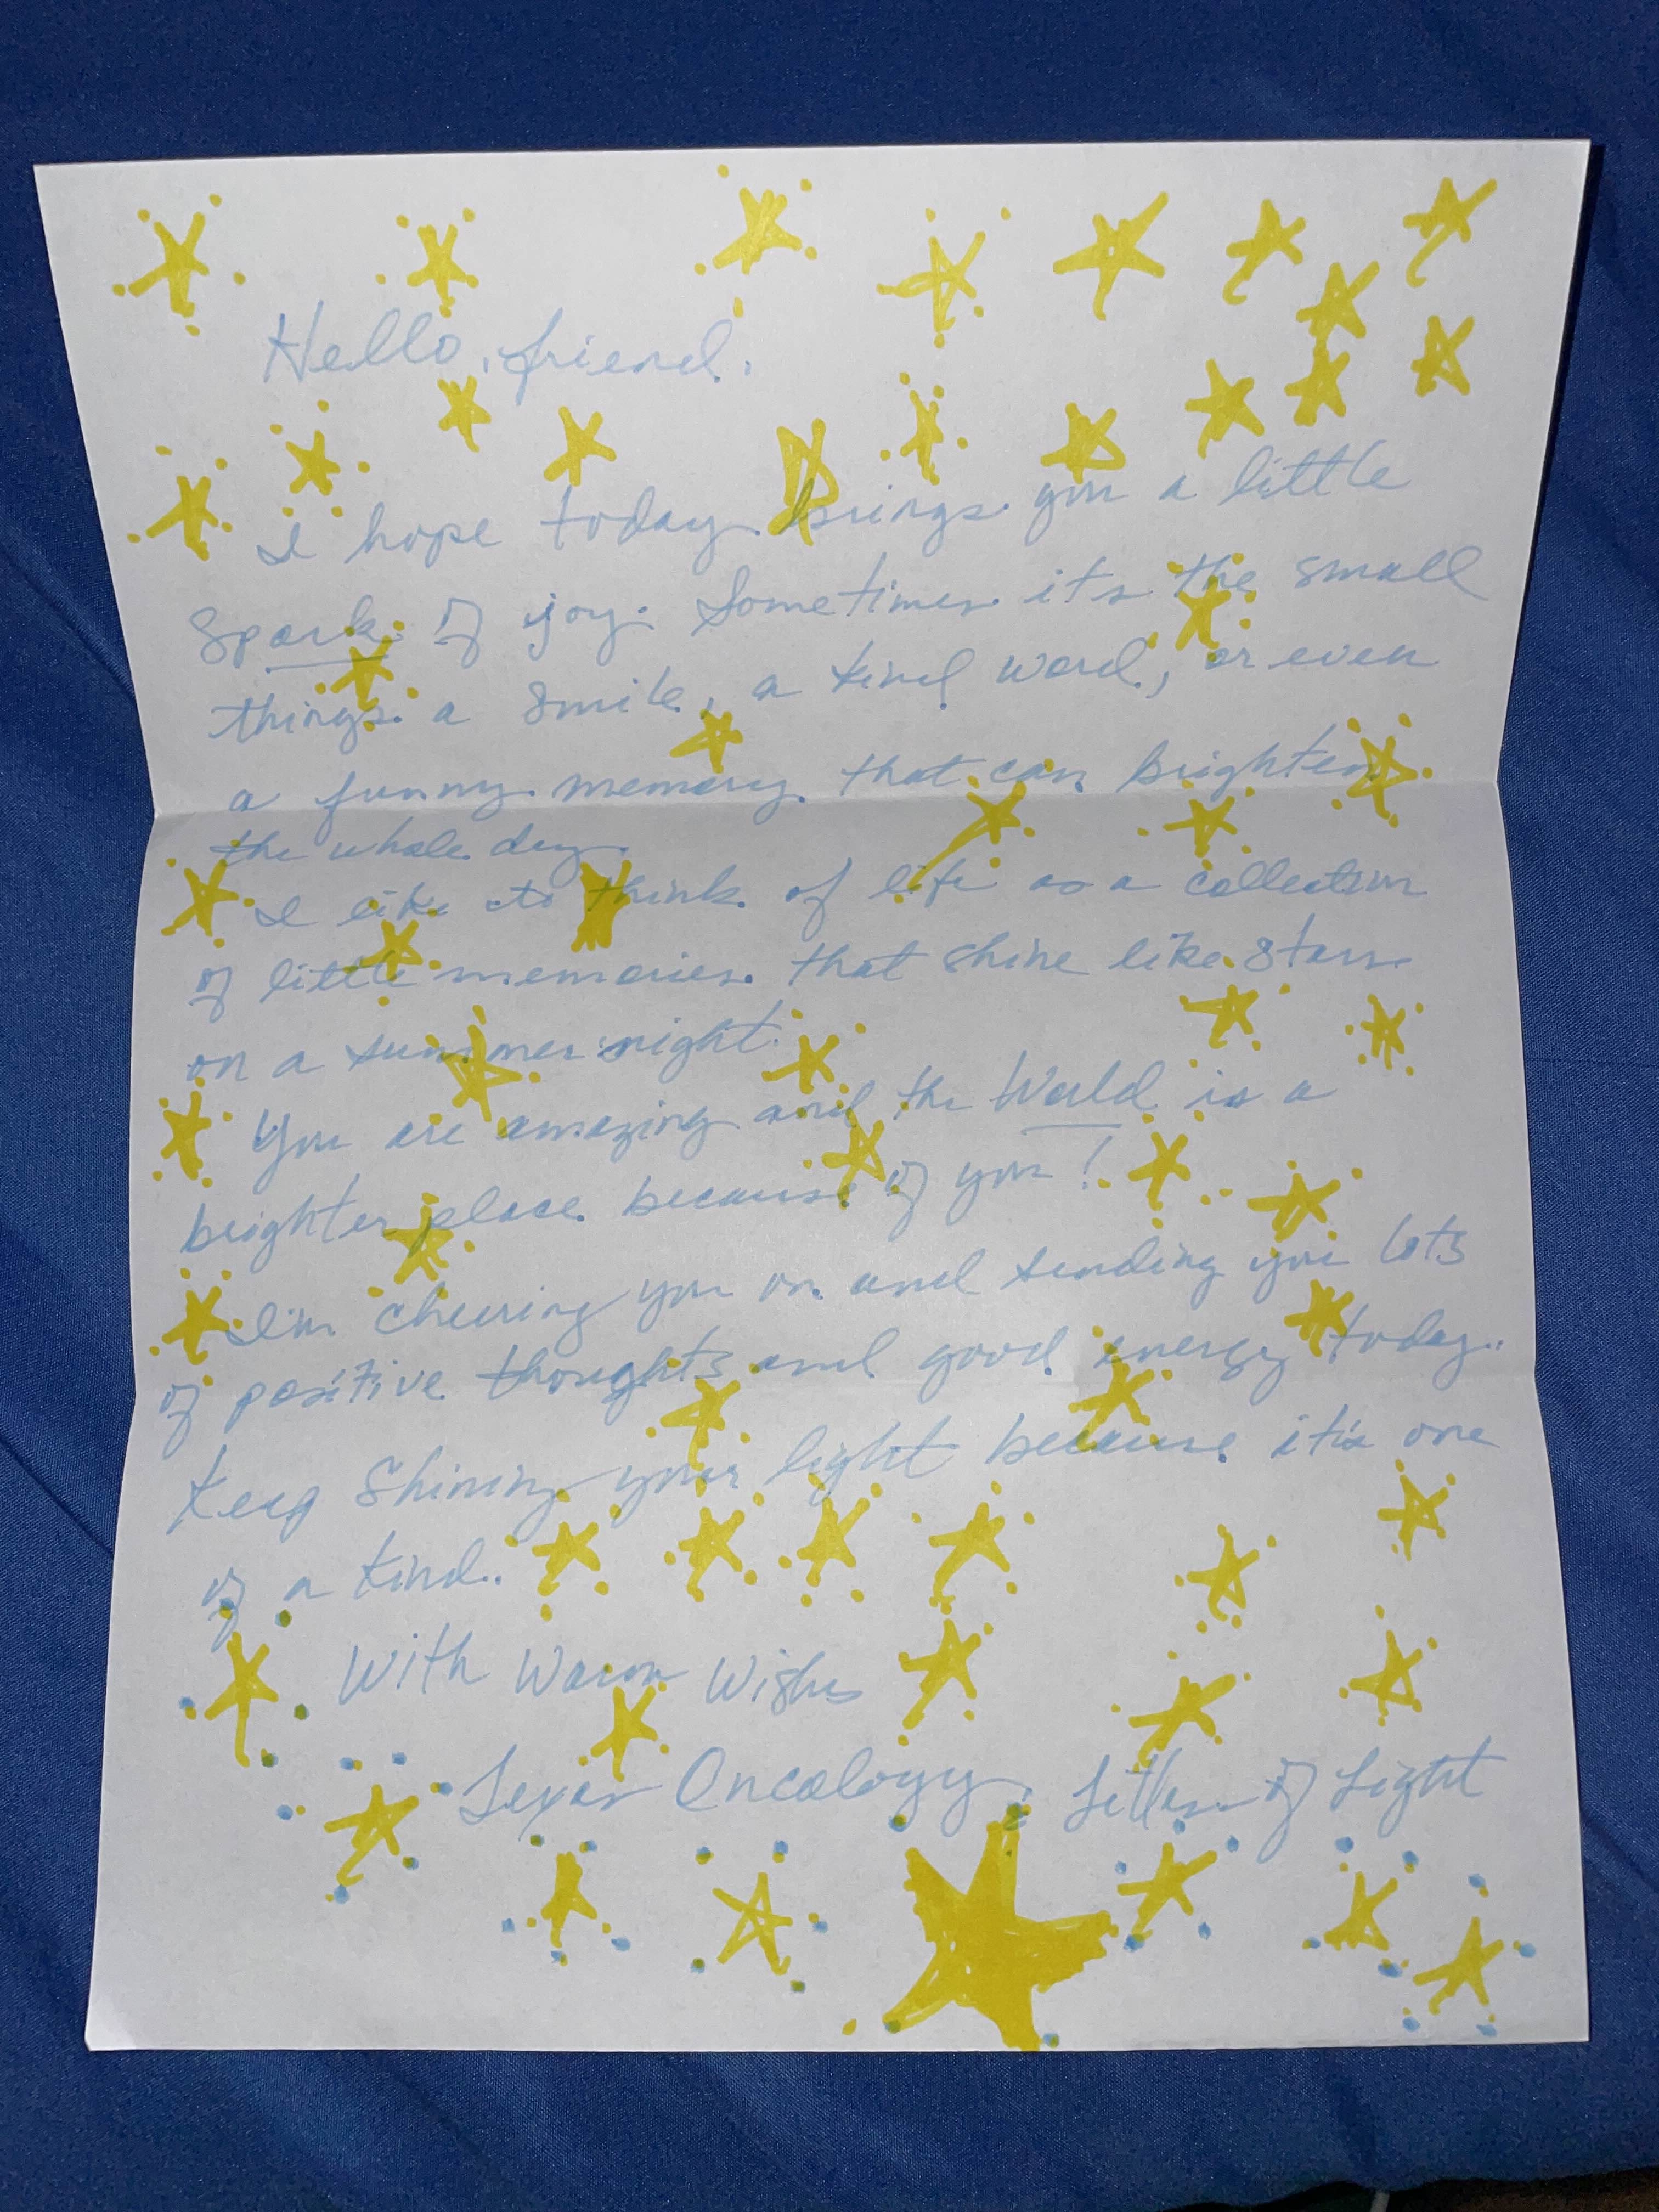 Hello, friend.
I hope today brings you a little
Spark of joy. Sometimes it's the small
things a smile, a kind word, or even
a funny memory that can brighten
the whole day.
I like to think of life as a collection
of little memories that shine like stars
on a summer night.
You are amazing and the World is a
brighter place because of you!
I'm cheering you on and sending you lots
of positive thoughts and good energy today.
Keep Shining your light because it's one
of a kind.
With Warm Wishes
Texas Oncology, Letters of Light